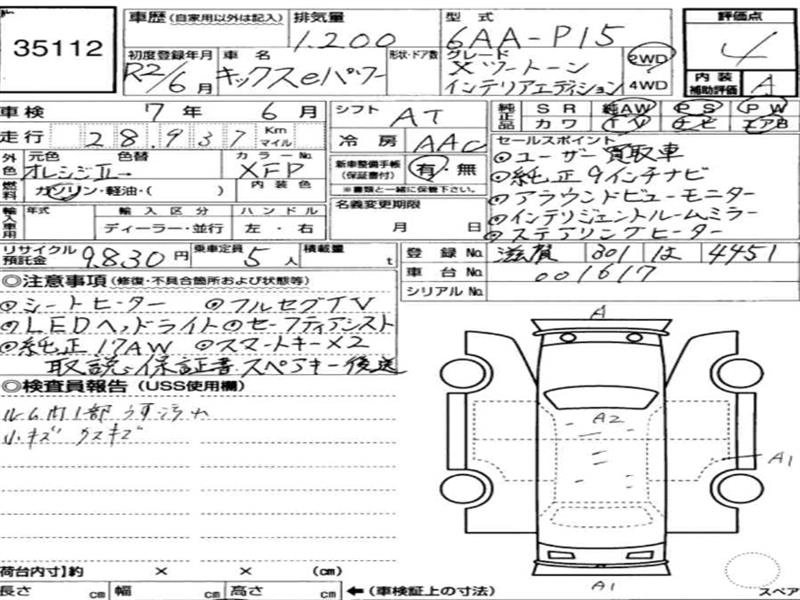 35112
車歴 (自家用以外は記入) 排気量 型式 評価点
1.200 6AA-P15 4
初度登録年月 車名 形状・ドア数 グレード 2WD
R2/6月 キックスeパワー Xツートーン 4WD
インテリアエディション
内装補助評価 A
車検 7年 6月 シフト AT 純正品 SR 純AW PS PW
カワ TV ナビ エアB
走行 28.937 Km マイル 冷房 AAC セールスポイント
外色 元色 色替 カラーNo. 新車整備手帳(保証書付) 有・無
オレンジII→ XFP ※書類と一緒に保管下さい。
◎ユーザー買取車
◎純正9インチナビ
◎アラウンドビューモニター
◎インテリジェントルームミラー
◎ステアリングヒーター
燃料 ガソリン・軽油・( ) 内装色
輸入車用 年式 輸入区分 ハンドル 名義変更期限
ディーラー・並行 左・右 月 日
リサイクル預託金 9830円 乗車定員 5人 積載量 t
登録No. 滋賀 301 は 4451
車台No. 001617
シリアルNo.
◎注意事項 (修復・不具合箇所および状態等)
◎シートヒーター ◎フルセグTV
◎LEDヘッドライト ◎セーフティアシスト
◎純正17AW ◎スマートキー×2
取説、保証書、スペアキー後送
◎検査員報告 (USS使用欄)
ルーム内1部うす汚れ
小キズ ウスキズ
A
A2
A1
A1
荷台内寸】約 × × (cm)
長さ cm 幅 cm 高さ cm ←(車検証上の寸法)
スペア